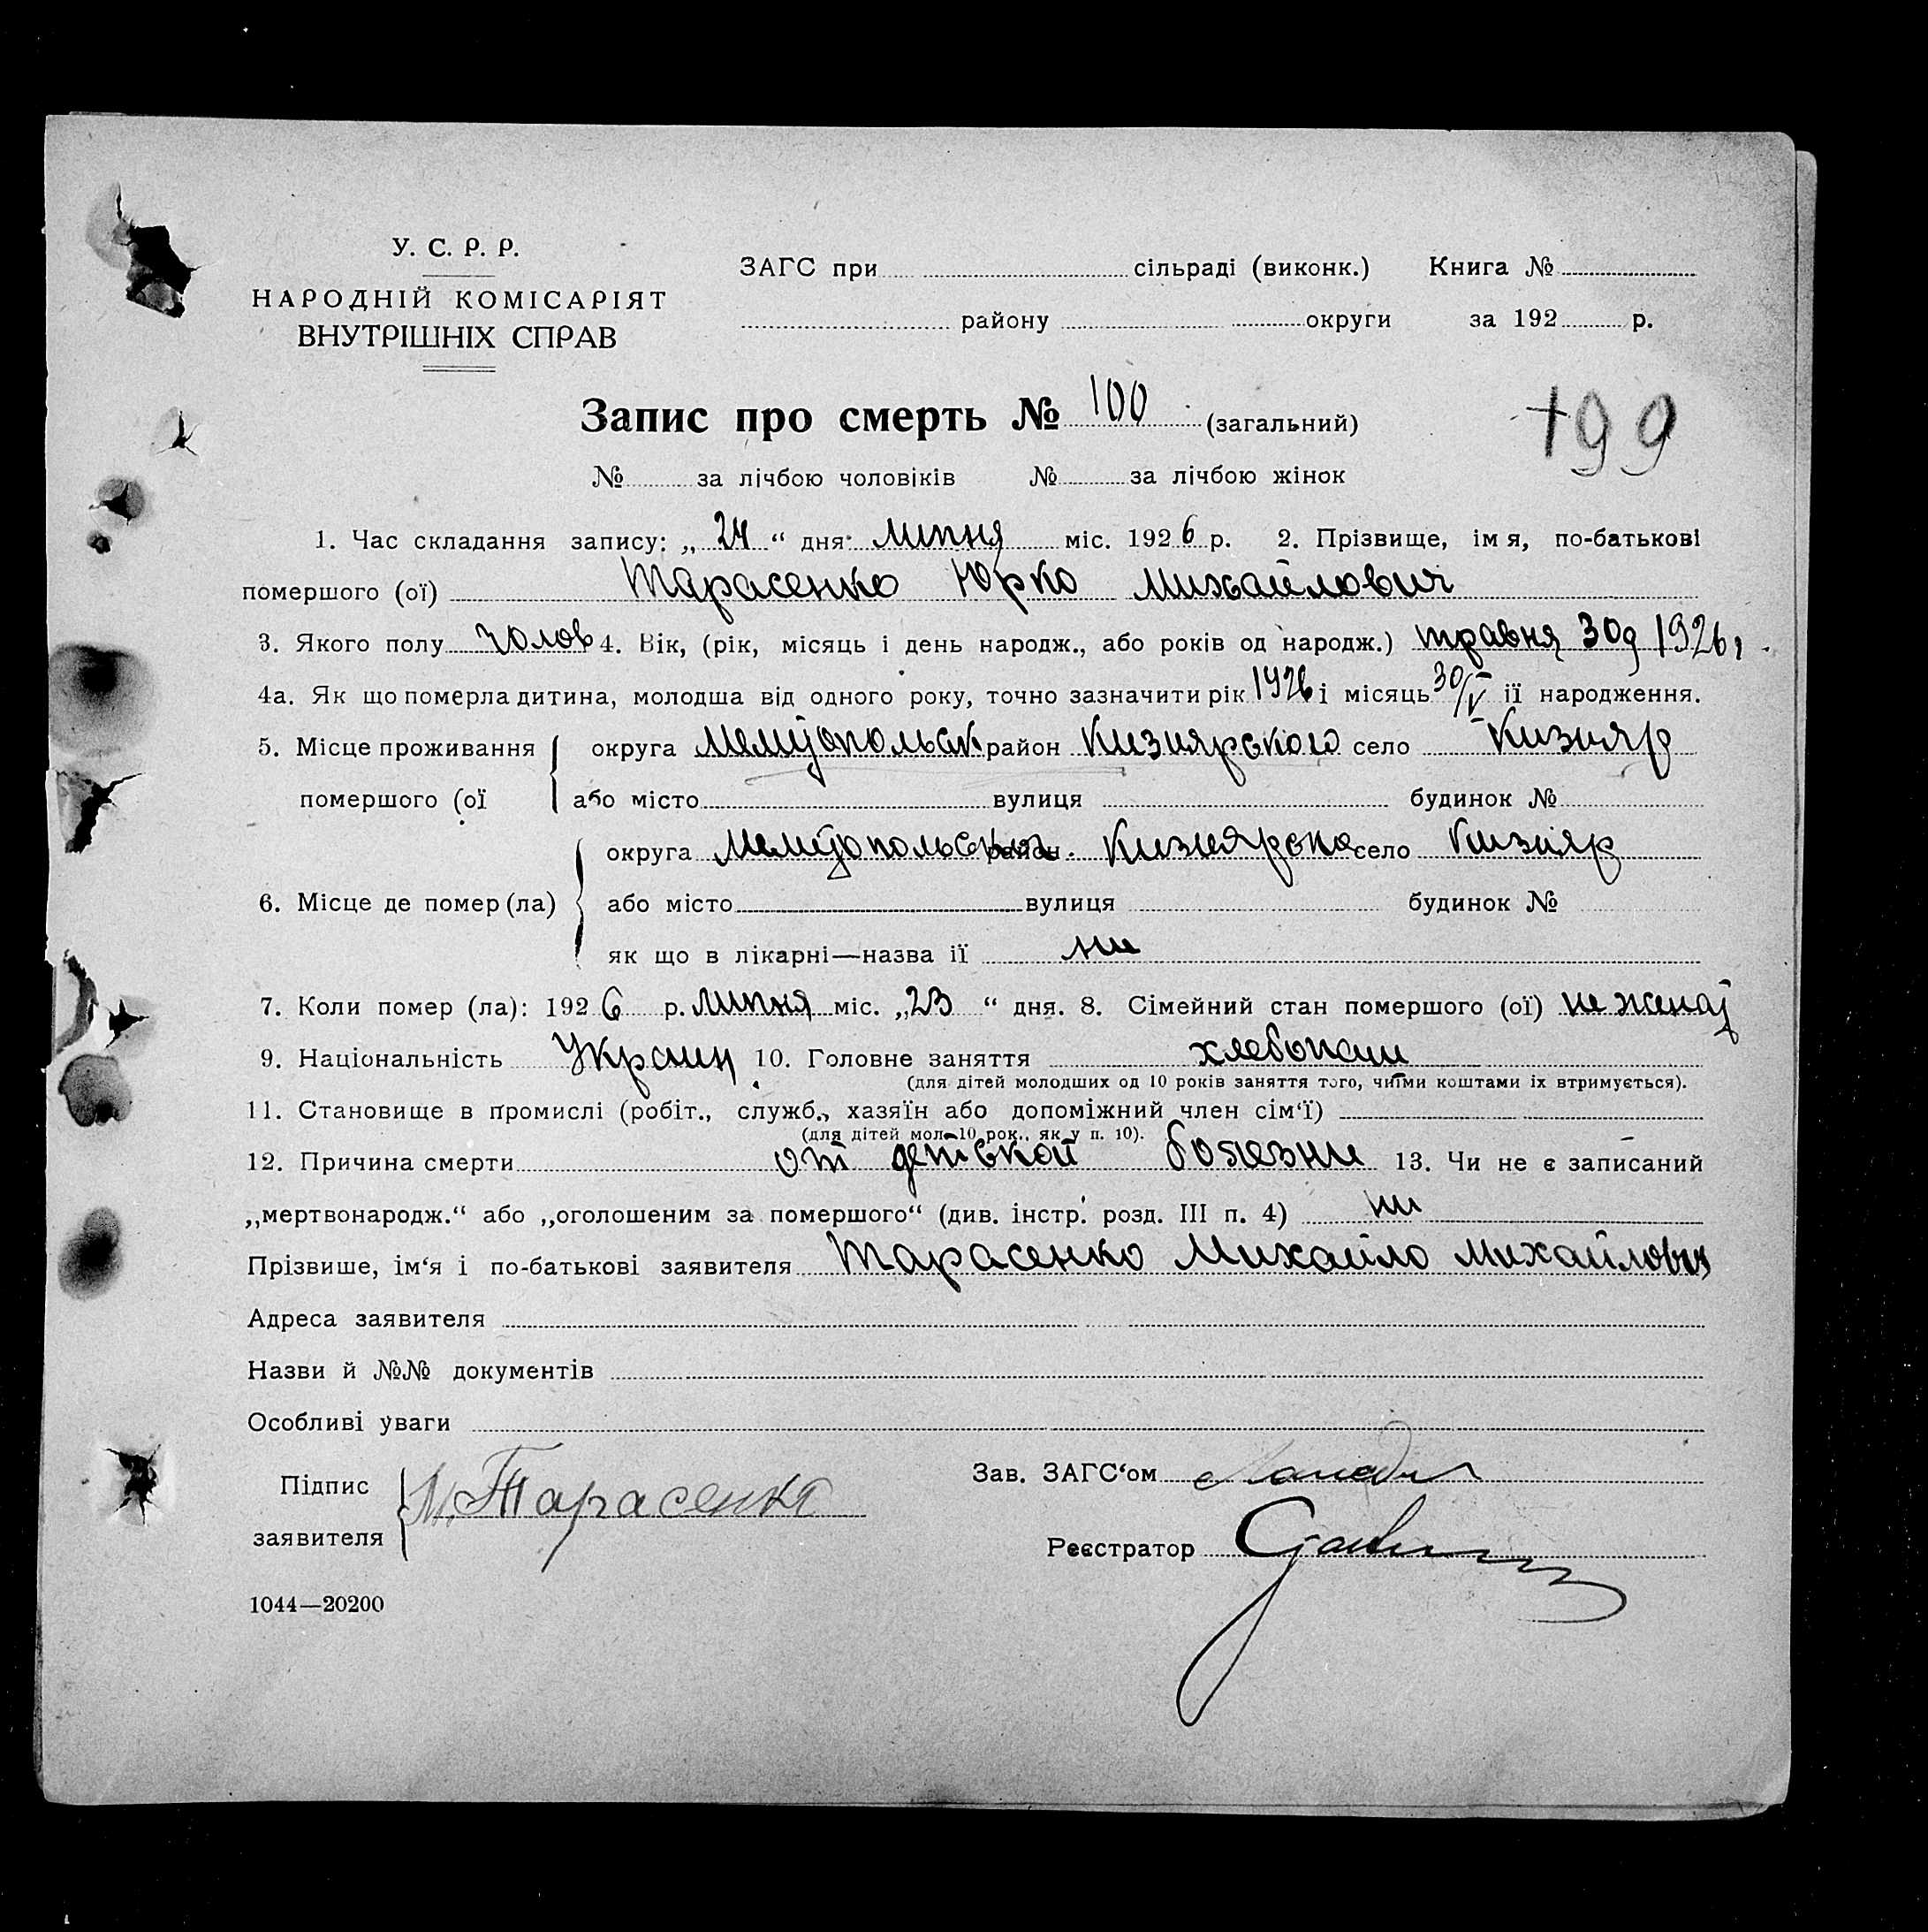 У. С. Р. Р.
НАРОДНІЙ КОМІСАРІЯТ
ВНУТРІШНІХ СПРАВ
ЗАГС при сільраді (виконк.) Книга №
району округи за 192 р.
Запис про смерть № 100 (загальний)
199
№ за лічбою чоловіків № за лічбою жінок
1. Час складання запису: „24“ дня липня міс. 1926 р. 2. Прізвище, імя, по-батькові
помершого (ої) Тарасенко Юрко Михайлович
3. Якого полу чолов 4. Вік, (рік, місяць і день народж., або років од народж.) травня 30д 1926 г
4а. Як що померла дитина, молодша від одного року, точно зазначити рік 1926 і місяць 30/V її народження.
5. Місце проживання округа район Кизиярского село Кизияр
помершого (ої або місто вулиця будинок №
округа район Кизиярско село Кизияр
6. Місце де помер (ла) або місто вулиця будинок №
як що в лікарні—назва її ни
7. Коли помер (ла): 1926 р. липня міс. „23“ дня. 8. Сімейний стан помершого (ої) не женат
9. Національність Украин 10. Головне заняття хлебопаш
(для дітей молодших од 10 років заняття того, чиїми коштами їх втримується).
11. Становище в промислі (робіт., служб., хазяїн або допоміжний член сім‘ї)
(для дітей мол. 10 рок., як у п. 10).
12. Причина смерти от детской болезни 13. Чи не є записаний
„мертвонародж.“ або „оголошеним за помершого“ (див. інстр. розд. III п. 4) ни
Прізвише, ім‘я і по-батькові заявителя Тарасенко Михайло Михайлович
Адреса заявителя
Назви й №№ документів
Особливі уваги
Підпис
заявителя М. Тарасенко
Зав. ЗАГС‘ом
Реєстратор
1044—20200